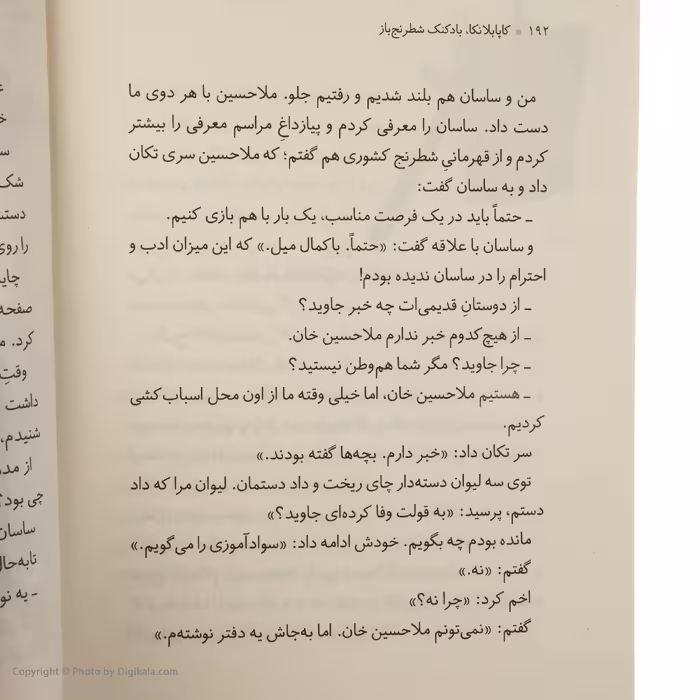 ۱۹۲ ■ کاپابلانکا، بادکنک شطرنج‌باز
من و ساسان هم بلند شدیم و رفتیم جلو. ملاحسین با هر دوی ما
دست داد. ساسان را معرفی کردم و پیازداغِ مراسم معرفی را بیشتر
کردم و از قهرمانیِ شطرنج کشوری هم گفتم؛ که ملاحسین سری تکان
داد و به ساسان گفت:
ـ حتماً باید در یک فرصت مناسب، یک بار با هم بازی کنیم.
و ساسان با علاقه گفت: «حتماً. باکمال میل.» که این میزان ادب و
احترام را در ساسان ندیده بودم!
ـ از دوستانِ قدیمی‌ات چه خبر جاوید؟
ـ از هیچ‌کدوم خبر ندارم ملاحسین خان.
ـ چرا جاوید؟ مگر شما هم‌وطن نیستید؟
ـ هستیم ملاحسین خان، اما خیلی وقته ما از اون محل اسباب‌کشی
کردیم.
سر تکان داد: «خبر دارم. بچه‌ها گفته بودند.»
توی سه لیوان دسته‌دار چای ریخت و داد دستمان. لیوان مرا که داد
دستم، پرسید: «به قولت وفا کرده‌ای جاوید؟»
مانده بودم چه بگویم. خودش ادامه داد: «سوادآموزی را می‌گویم.»
گفتم: «نه.»
اخم کرد: «چرا نه؟»
گفتم: «نمی‌تونم ملاحسین خان. اما به‌جاش یه دفتر نوشته‌م.»
شک
دستش
را روی
صفحه
کرد.
وقتِ
داشت
شنیدم،
از
چی بود؟
ساسان
تابه‌حال
ـ یه
Copyright © Photo by Digikala.com